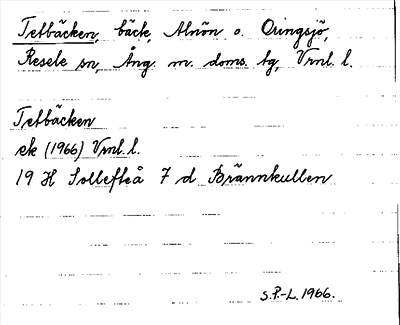 Tetbäcken, bäck, Alnön o. Oringsjö,
Resele sn, Ång. m. doms. tg, Vrnl. l.
Tetbäcken
ek (1966) Vrnl. l.
19 H Sollefteå 7 d Brännkullen
S.P.-L. 1966.